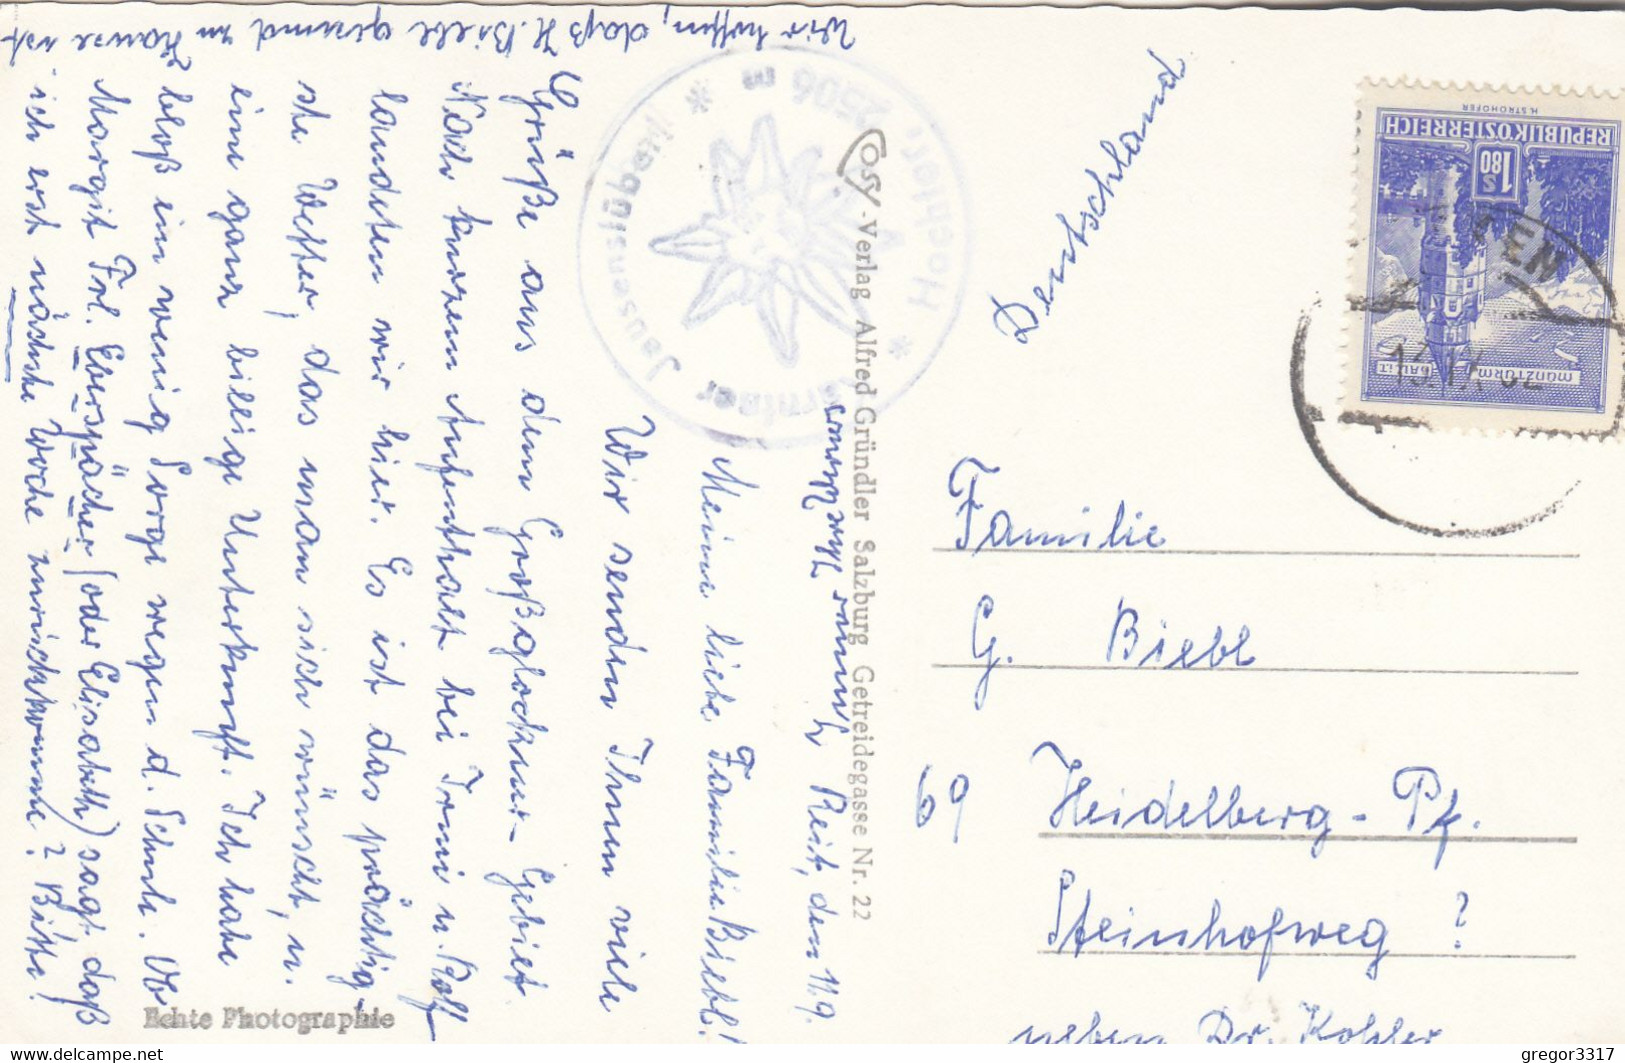 Wir hoffen, daß H. Biebl gesund zu Hause ist
Reit, den 11.9.
Meine liebe Familie Biebl!
Wir senden Ihnen viele
Grüße aus dem Großglockner-Gebiet.
Nach kurzem Aufenthalt bei Irmi u. Rolf
landeten wir hier. Es ist das prächtig-
ste Wetter, das man sich wünscht, u.
eine ganz billige Unterkunft. Ich habe
bloß ein wenig Sorge wegen d. Schule. Ob
Margit Frl. Eberspächer (oder Elisabeth) sagt daß
ich erst nächste Woche zurückkomme? Bitte!
Cosy-Verlag Alfred Gründler Salzburg Getreidegasse Nr. 22
Echte Photographie
Jausenstation
Hochtor 2506 m
Deutschland
Familie
G. Biebl
69 Heidelberg-Pf.
Steinhofweg ?
neben Dr. Kohler
REPUBLIK ÖSTERREICH
H. STROHOFER
S 1.80
MÜNZTURM
HALL i. T.
13.IX.62
gregor3317